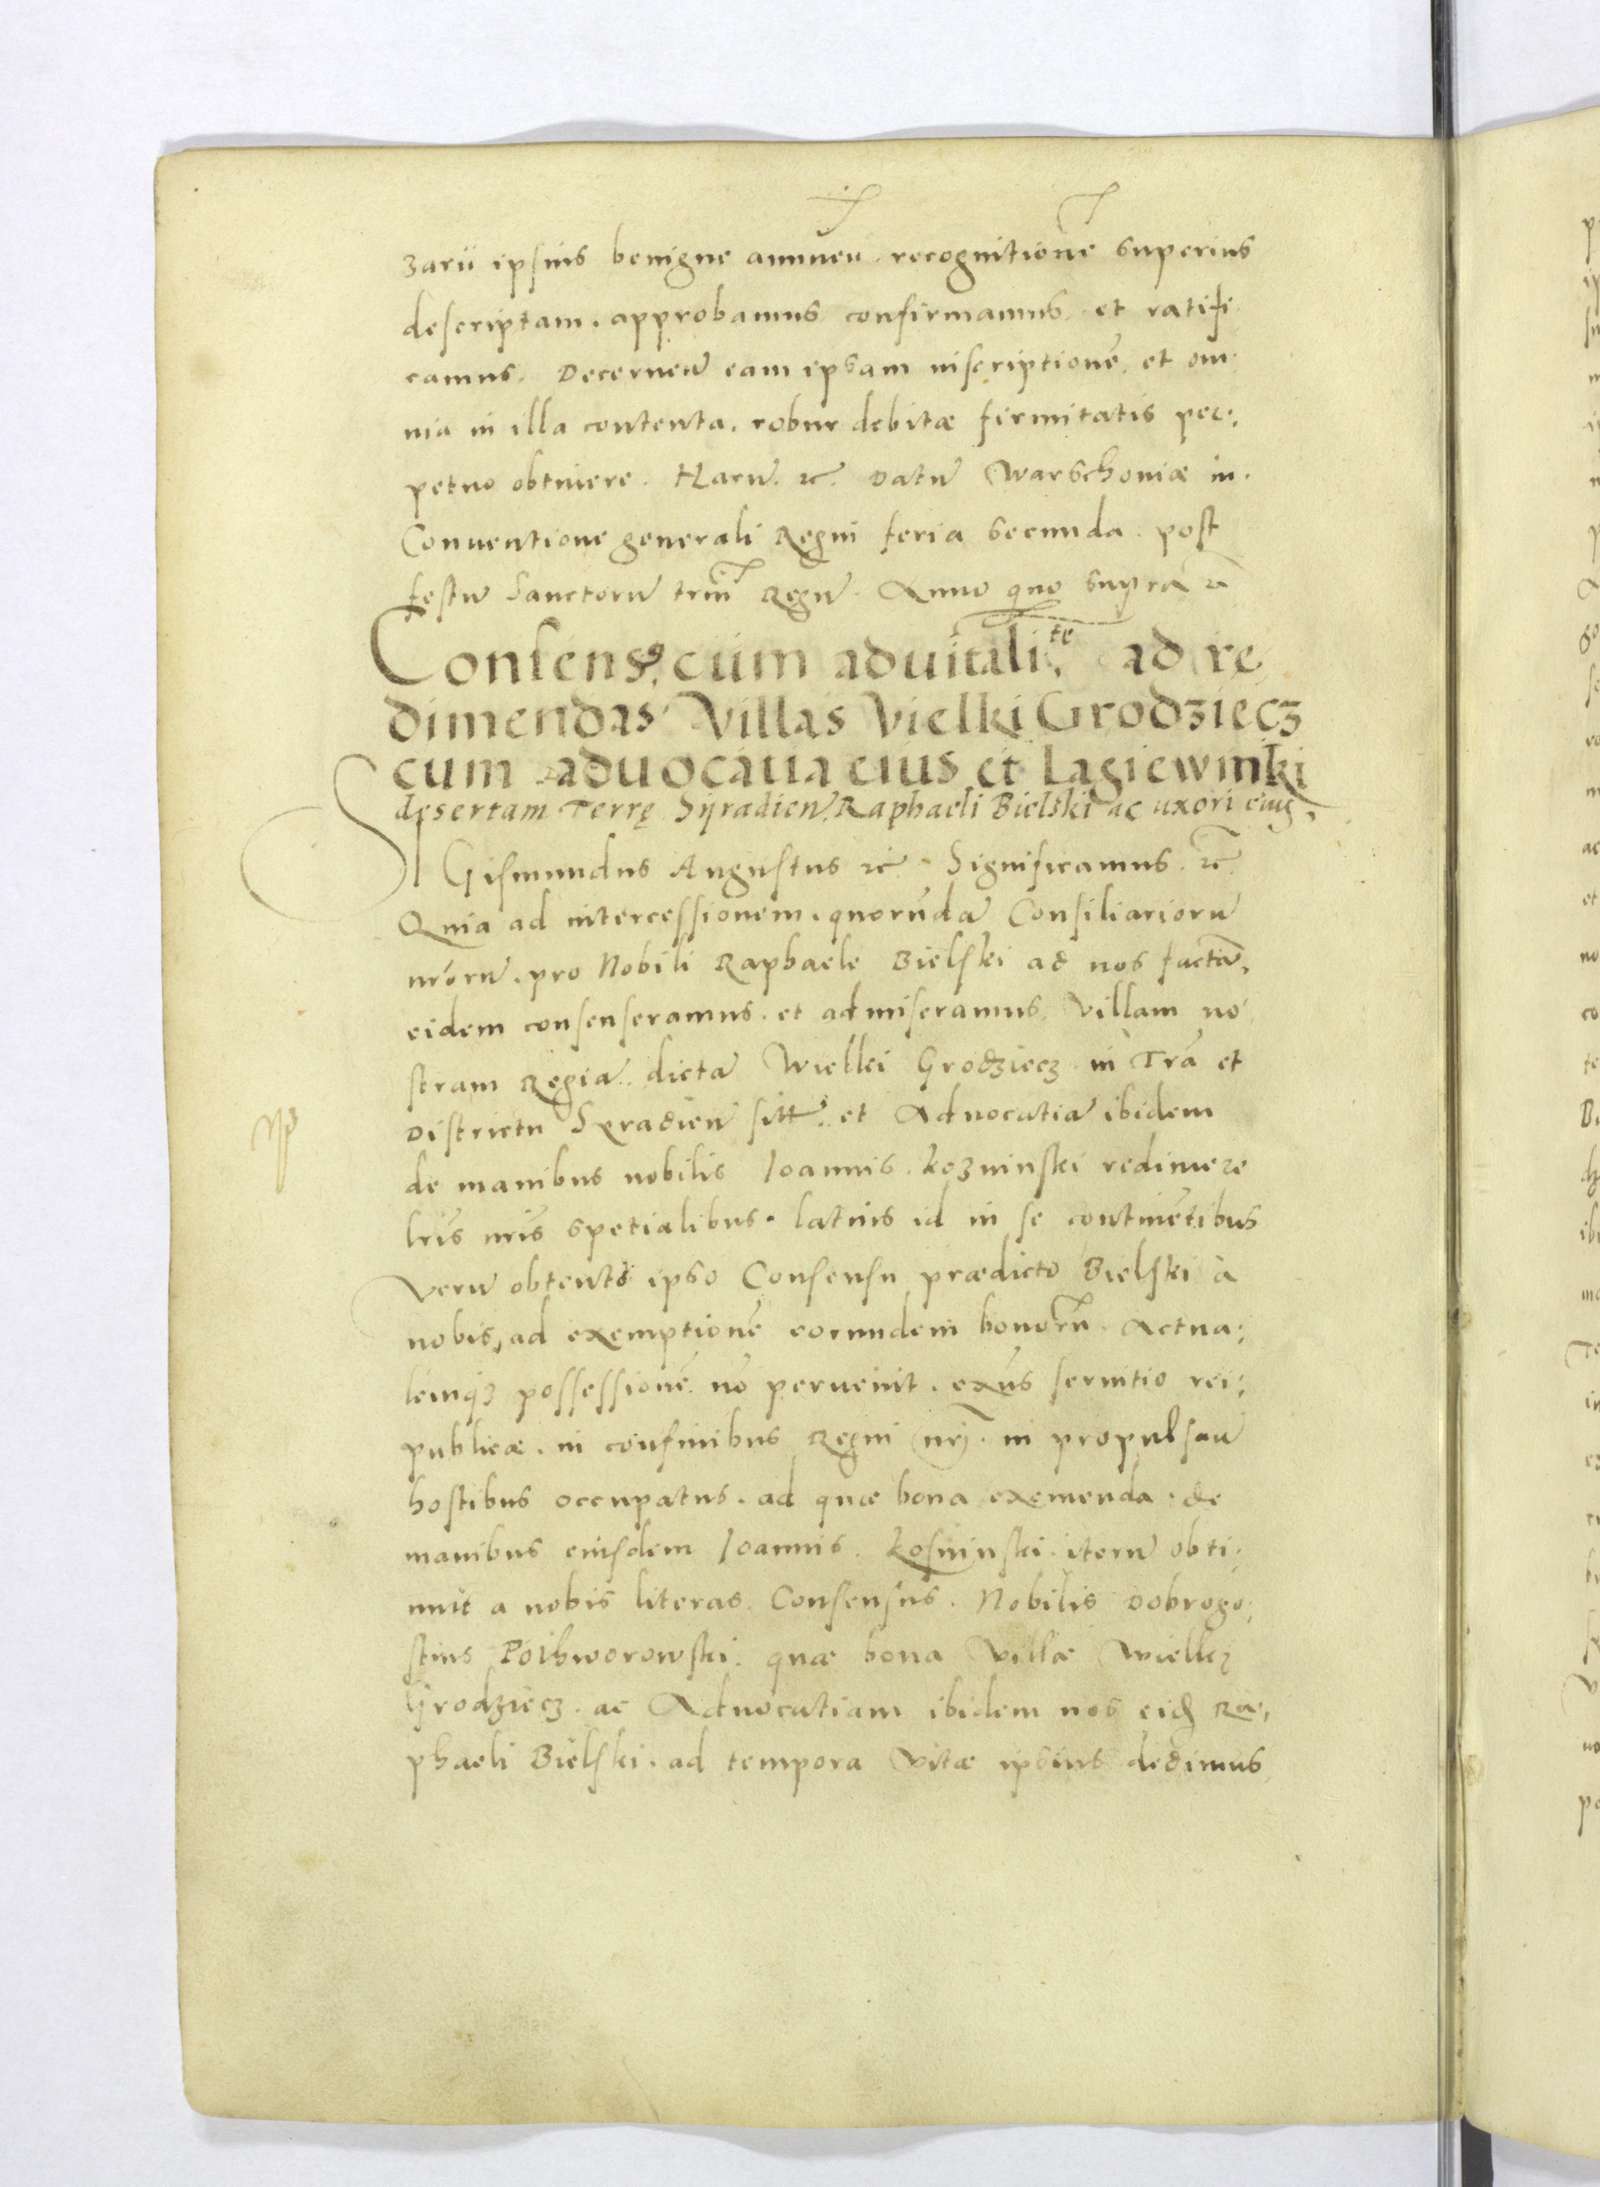 zarii ipsius benigne annuen. recognitionē superius
descriptam. approbamus confirmamus. et ratifi
camus. Decernen̄ eam ipsam inscriptionē, et om
nia in illa contenta. robur debitæ firmitatis per:
petuo obtinere. Harū. etc. Datū Warschoniæ in.
Conuentione generali Regni feria secunda. post
festū Sanctorū triū Regū. Anno quo supra etc
Consens9 cum aduitalite ad re
dimendas Villas Vielki Grodziecz
cum aduocatia eius et Lagiewniki
desertam Terrę Sijradien̄. Raphaeli Bielski ac uxori eius
SIgismundus Augustus etc. Significamus. etc
Quia ad intercessionem. quorundā Consiliariorū
nr̄orū. pro Nobili Raphaele Bielski ad nos factā,
eidem consenseramus. et admiseramus, Villam no
stram Regiā. dictā Wielki Grodziecz. in Trā et
Districtu Syradien̄ sitt. et Aduocatiā ibidem
de manibus nobilis Ioannis. Kozninski redimere
lr̄is nr̄is spetialibus. latius id in se continētibus
Verū obtento ipso Consensu prædicto Bielski a
nobis, ad exemptionē eorundem bonorū. Actua:
lemqz possessionē nō peruenit. exn̄s seruitio rei:
publicæ. in confinibus Regni nrj. in propulsan̄
hostibus occupatus. ad quæ bona exemenda. de
manibus eiusdem Ioannis. Kosninski. iterū obti:
nuit a nobis literas. Consensus. Nobilis Dobrogo:
stius Pothworowski. quæ bona Villæ Wielki
Grodziecz. ac Aduocatiam ibidem nos eid Ra,
phaeli Bielski. ad tempora Vitæ ipsius dedimus